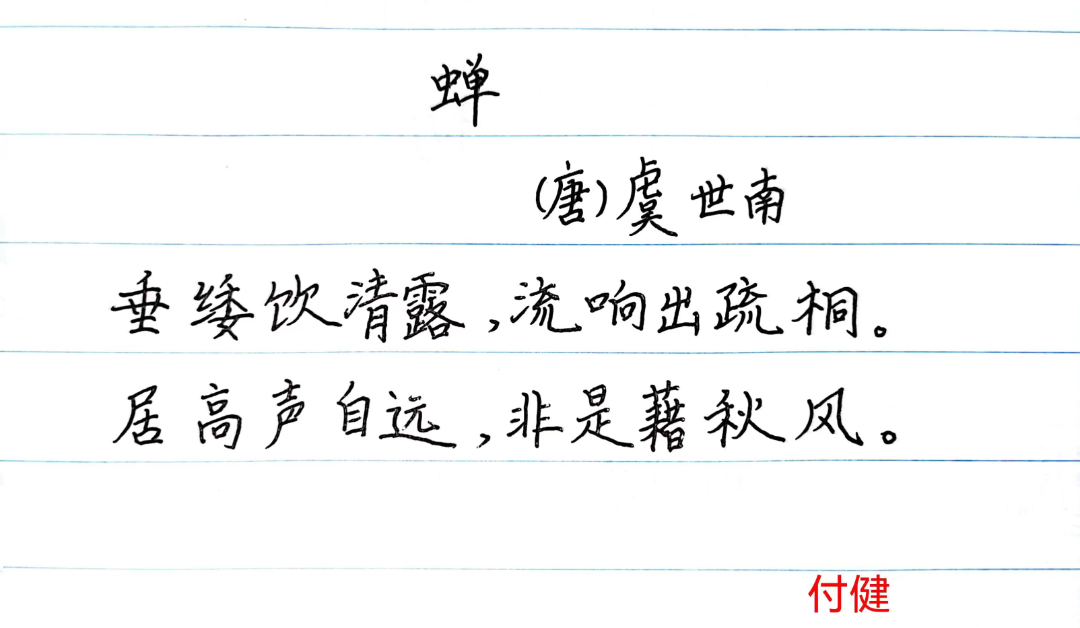 蝉
(唐)虞世南
垂緌饮清露,流响出疏桐。
居高声自远,非是藉秋风。
付健